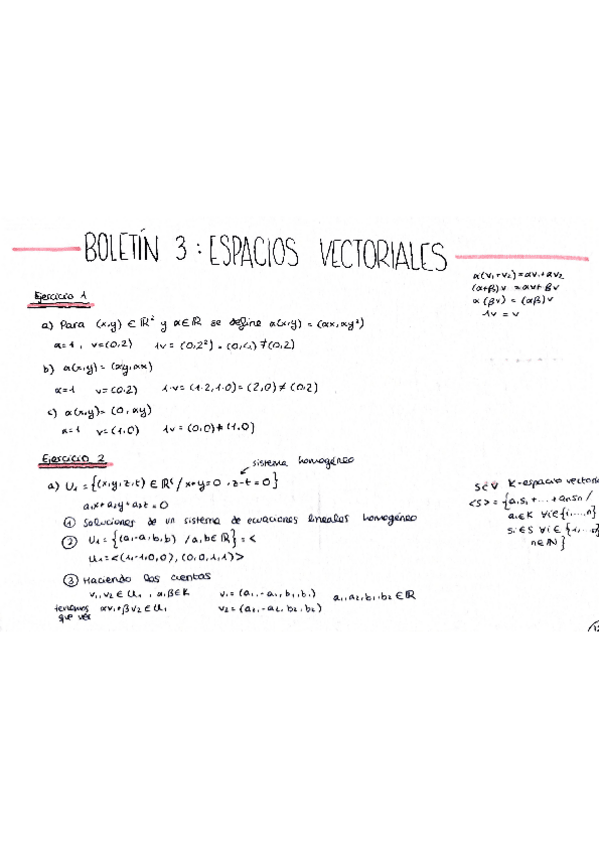 BOLETÍN 3: ESPACIOS VECTORIALES
α(v₁+v₂)=αv₁+αv₂
(α+β)v = αv+βv
α(βv) = (αβ)v
1v = v
Ejercicio 1
a) Para (x,y) ∈ ℝ² y α∈ℝ se define α(x,y) = (αx,αy²)
α=1, v=(0,2) 1v = (0,2²) = (0,4) ≠ (0,2)
b) α(x,y) = (αy,αx)
α=1 v=(0,2) 1·v = (1·2,1·0) = (2,0) ≠ (0,2)
c) α(x,y) = (0,αy)
α=1 v=(1,0) 1v = (0,0) ≠ (1,0)
Ejercicio 2
sistema homogéneo
a) U₁ = {(x,y,z,t) ∈ ℝ⁴ / x+y=0, z-t=0}
a₁x+a₂y+a₃z = 0
① Soluciones de un sistema de ecuaciones lineales homogéneo
② U₁ = {(a,-a,b,b) / a,b∈ℝ} = <
U₁ = <(1,-1,0,0), (0,0,1,1)>
③ Haciendo las cuentas
v₁,v₂ ∈ U₁, α,β∈K v₁ = (a₁,-a₁,b₁,b₁) a₁,a₂,b₁,b₂ ∈ℝ
tenemos que ver αv₁+βv₂ ∈ U₁ v₂ = (a₂,-a₂,b₂,b₂)
S⊂V K-espacio
<S> = {a₁s₁+...+aₙsₙ /
aᵢ∈K ∀i∈{1,...,n}
sᵢ∈S ∀i∈{1,...
n∈ℕ}